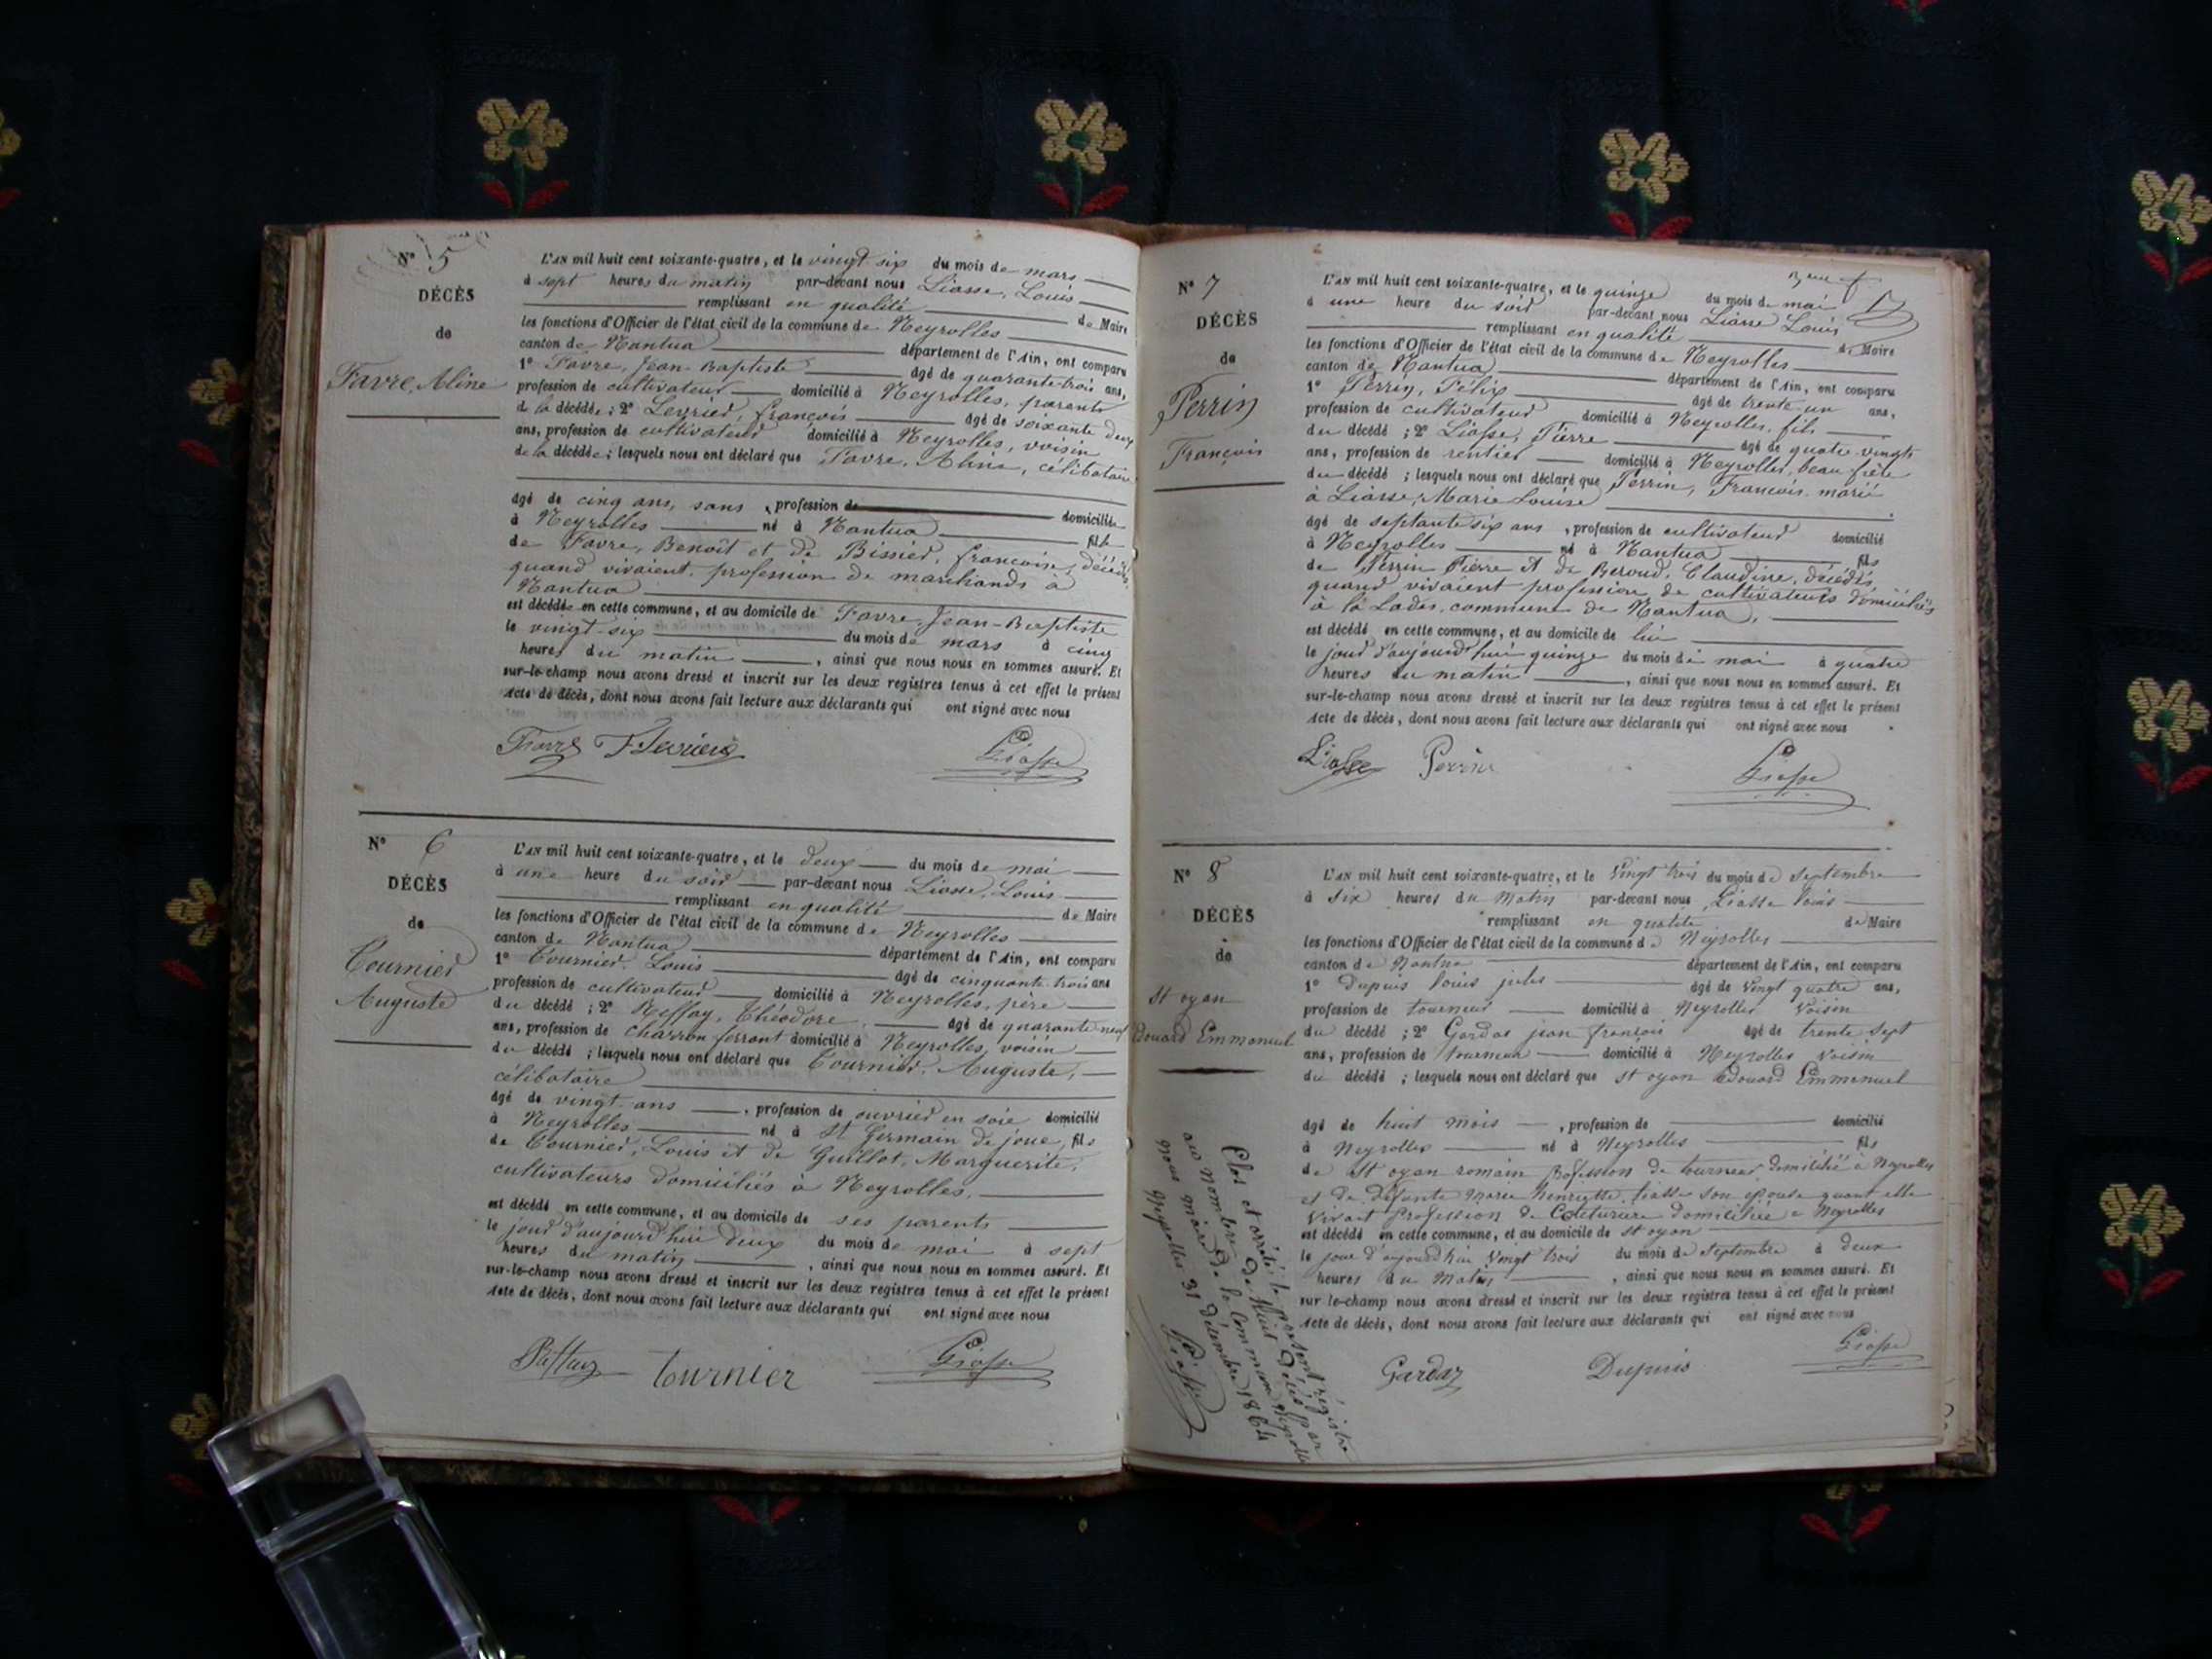 N° 5
DÉCÈS
de
Favre, Aline
L'AN mil huit cent soixante-quatre, et le vingt six du mois de mars
à sept heures du matin par-devant nous Liasse, Louis
remplissant en qualité de Maire
les fonctions d'Officier de l'état civil de la commune de Neyrolles
canton de Nantua département de l'Ain, ont comparu
1° Favre, Jean-Baptiste âgé de quarante-trois ans,
profession de cultivateur domicilié à Neyrolles, parents
de la décédée; 2° Levrier, françois âgé de soixante deux
ans, profession de cultivateur domicilié à Neyrolles, voisin
de la décédée; lesquels nous ont déclaré que Favre, Aline, célibataire
âgé de cinq ans, sans profession de domiciliée
à Neyrolles né à Nantua fille
de Favre, Benoît et de Bissier, françoise, décédés,
quand vivaient, profession de marchands à
Nantua
est décédée en cette commune, et au domicile de Favre Jean-Baptiste
le vingt-six du mois de mars à cinq
heures du matin, ainsi que nous nous en sommes assuré. Et
sur-le-champ nous avons dressé et inscrit sur les deux registres tenus à cet effet le présent
acte de décès, dont nous avons fait lecture aux déclarants qui ont signé avec nous
Favre F Levrier Liasse
N° 6
DÉCÈS
de
Tournier
Auguste
L'AN mil huit cent soixante-quatre, et le deux du mois de mai
à une heure du soir par-devant nous Liasse, Louis
remplissant en qualité de Maire
les fonctions d'Officier de l'état civil de la commune de Neyrolles
canton de Nantua département de l'Ain, ont comparu
1° Tournier, Louis âgé de cinquante-trois ans
profession de cultivateur domicilié à Neyrolles, père
du décédé; 2° Théodore, âgé de quarante-neuf
ans, profession de charron ferrant domicilié à Neyrolles, voisin
du décédé; lesquels nous ont déclaré que Tournier, Auguste,
célibataire
âgé de vingt ans, profession de ouvrier en soie domicilié
à Neyrolles né à St Germain de joux, fils
de Tournier, Louis et de Guillot, Marguerite,
cultivateurs domiciliés à Neyrolles,
est décédé en cette commune, et au domicile de ses parents
le jour d'aujourd'hui deux du mois de mai à sept
heures du matin, ainsi que nous nous en sommes assuré. Et
sur-le-champ nous avons dressé et inscrit sur les deux registres tenus à cet effet le présent
acte de décès, dont nous avons fait lecture aux déclarants qui ont signé avec nous
tournier Liasse
N° 7
DÉCÈS
de
Perrin
François
L'AN mil huit cent soixante-quatre, et le quinze du mois de mai
à une heure du soir par-devant nous Liasse Louis
remplissant en qualité de Maire
les fonctions d'Officier de l'état civil de la commune de Neyrolles
canton de Nantua département de l'Ain, ont comparu
1° Perrin, Félix âgé de trente-un ans,
profession de cultivateur domicilié à Neyrolles, fils
du décédé; 2° Liasse, Pierre âgé de quatre-vingts
ans, profession de rentier domicilié à Neyrolles, beau-frère
du décédé; lesquels nous ont déclaré que Perrin, François marié
à Liasse, Marie Louise
âgé de septante six ans, profession de cultivateur domicilié
à Neyrolles né à Nantua fils
de Perrin Pierre et de Beroud, Claudine, décédés,
quand vivaient profession de cultivateurs domiciliés
à commune de Nantua,
est décédé en cette commune, et au domicile de lui
le jour d'aujourd'hui quinze du mois de mai à quatre
heures du matin, ainsi que nous nous en sommes assuré. Et
sur-le-champ nous avons dressé et inscrit sur les deux registres tenus à cet effet le présent
acte de décès, dont nous avons fait lecture aux déclarants qui ont signé avec nous
Liasse Perrin Liasse
N° 8
DÉCÈS
de
St oyan
Edouard Emmanuel
L'AN mil huit cent soixante-quatre, et le Vingt trois du mois de Septembre
à Six heures du Matin par-devant nous Liasse louis
remplissant en qualite de Maire
les fonctions d'Officier de l'état civil de la commune de Neyrolles
canton de Nantua département de l'Ain, ont comparu
1° Dupuis louis jules âgé de Vingt quatre ans,
profession de tourneur domicilié à Neyrolles Voisin
du décédé; 2° Gardas jean françois âgé de trente Sept
ans, profession de tourneur domicilié à Neyrolles Voisin
du décédé; lesquels nous ont déclaré que st oyan Edouard Emmanuel
âgé de huit mois, profession de domicilié
à Neyrolles né à Neyrolles fils
de St oyan romain Profession de tourneur domicilié à Neyrolles
et de défunte Marie henriette liasse son epouse quant elle
Vivait Profession de Couturiere domiciliée a Neyrolles
est décédé en cette commune, et au domicile de st oyan
le jour d'aujourd'hui Vingt trois du mois de Septembre à deux
heures du Matin, ainsi que nous nous en sommes assuré. Et
sur-le-champ nous avons dressé et inscrit sur les deux registres tenus à cet effet le présent
acte de décès, dont nous avons fait lecture aux déclarants qui ont signé avec nous
Gardaz Dupuis Liasse
Clos et arrêté le présent régistre
au nombre de Huit Décès par
nous maire de la Commune Neyrolles
Neyrolles 31 Décembre 1864
Liasse